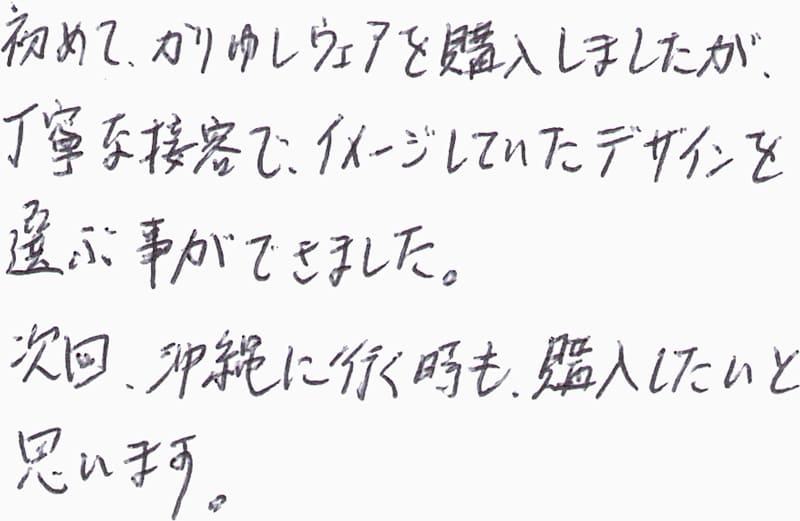 初めて、かりゆしウェアを購入しましたが、
丁寧な接客で、イメージしていたデザインを
選ぶ事ができました。
次回、沖縄に行く時も、購入したいと
思います。